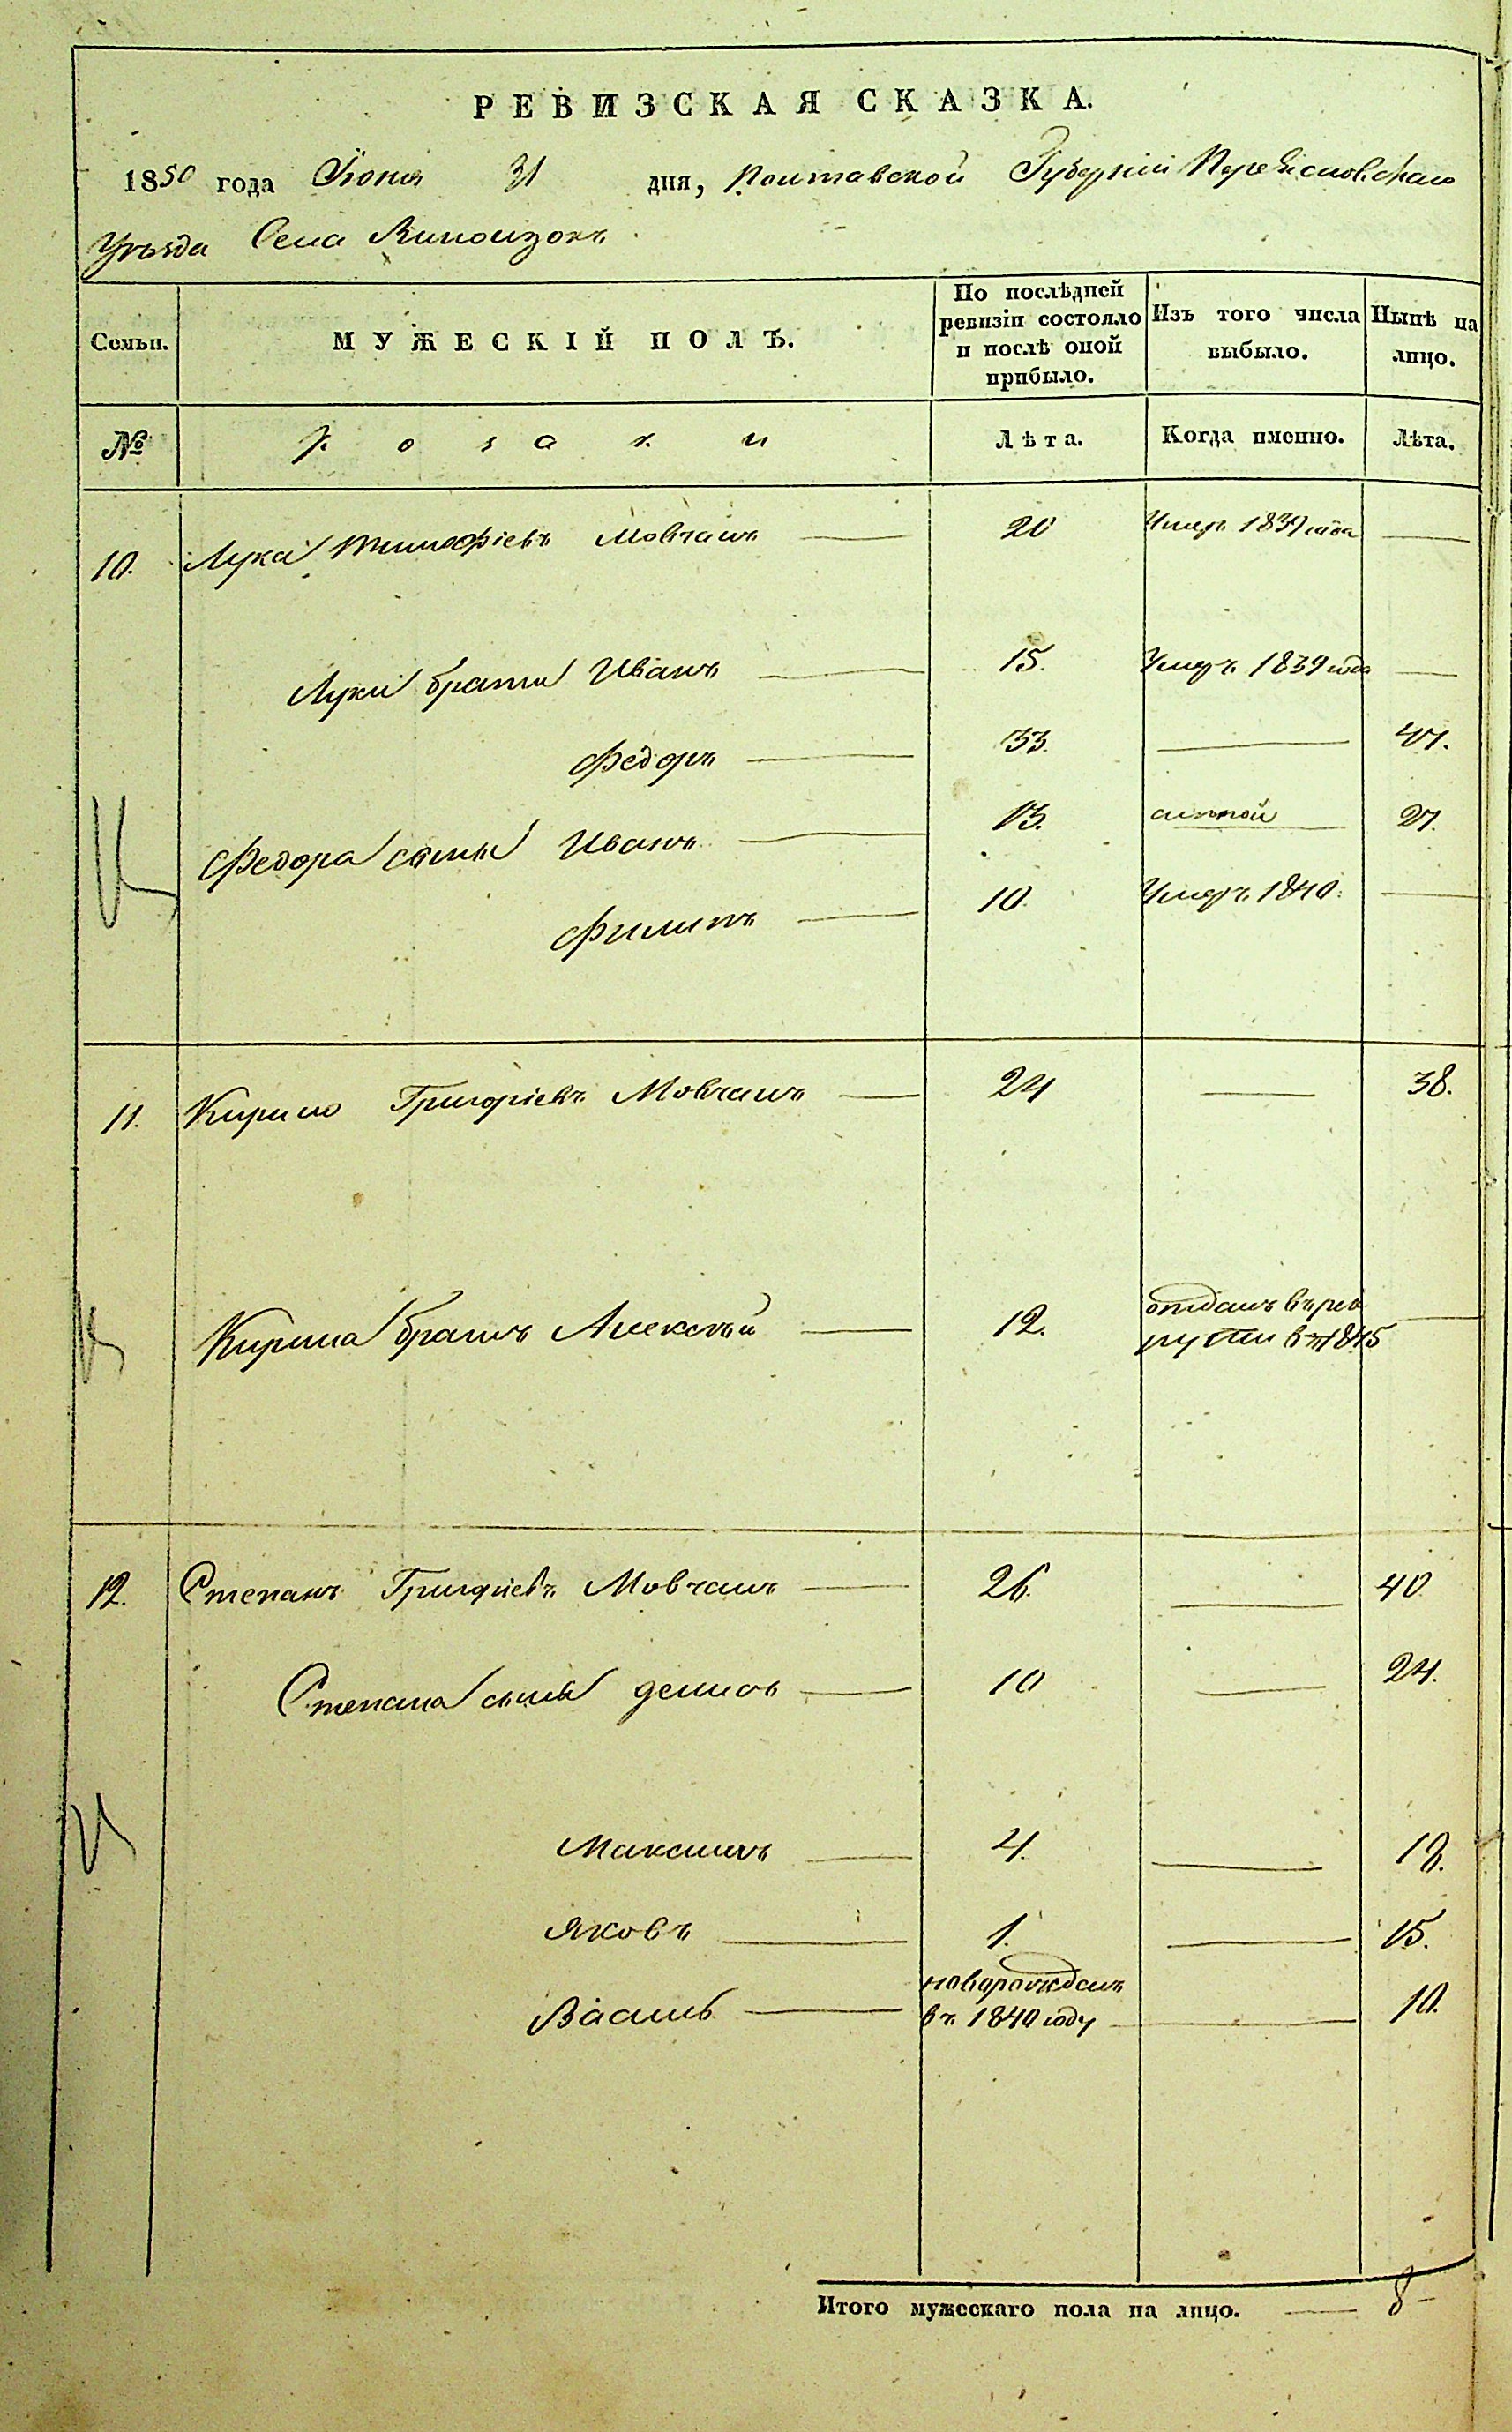 РЕВИЗСКАЯ СКАЗКА.
1850 года Іюня 31 дня, Полтавской Губерніи Переяславскаго
Уѣзда Села
Семьи. МУЖЕСКІЙ ПОЛЪ. По послѣдней ревизіи состояло и послѣ оной прибыло. Изъ того числа выбыло. Нынѣ на лицо.
№ Козаки Лѣта. Когда именно. Лѣта.
10. Лука Тимофіевъ Мовчанъ 20 Умеръ 1839 года
Луки братья Иванъ 15. Умеръ 1839 года
Федоръ 33. 47.
Федора сыны Иванъ 13. слѣпой 27.
Филипъ 10. Умеръ 1840.
11. Кирило Григоріевъ Мовчанъ 24 38.
Кирила братъ Алексѣй 12. отданъ въ рек
руты въ 1845
12. Степанъ Григоріевъ Мовчанъ 26. 40
Степана сыны Демидъ 10 24.
Максимъ 4. 18.
Яковъ 1. 15.
Василь новорожденъ
въ 1840 году 10.
Итого мужескаго пола на лицо. 8